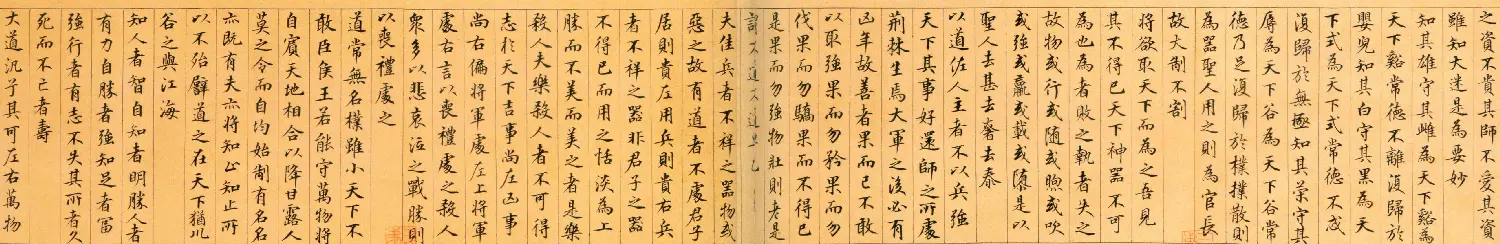 之資不貴其師不愛其資
雖知大迷是為要妙
知其雄守其雌為天下谿為
天下谿常德不離復歸於
嬰兒知其白守其黑為天
下式為天下式常德不忒
復歸於無極知其榮守其
辱為天下谷為天下谷常
德乃足復歸於樸樸散則
為器聖人用之則為官長
故大制不割
將欲取天下而為之吾見
其不得已天下神器不可
為也為者敗之執者失之
故物或行或随或煦或吹
或強或羸或載或隳是以
聖人去甚去奢去泰
以道佐人主者不以兵強
天下其事好還師之所處
荊棘生焉大軍之後必有
凶年故善者果而已不敢
以取強果而勿矜果而勿
伐果而勿驕果而不得已
是果而勿強物壯則老是
謂不道不道早已
夫佳兵者不祥之器物或
惡之故有道者不處君子
居則貴左用兵則貴右兵
者不祥之器非君子之器
不得已而用之恬淡為上
勝而不美而美之者是樂
殺人夫樂殺人者不可得
志於天下吉事尚左凶事
尚右偏將軍處左上將軍
處右言以喪禮處之殺人
衆多以悲哀泣之戰勝則
以喪禮處之
道常無名樸雖小天下不
敢臣侯王若能守萬物將
自賓天地相合以降甘露人
莫之令而自均始制有名名
亦既有夫亦將知止知止所
以不殆譬道之在天下猶川
谷之與江海
知人者智自知者明勝人者
有力自勝者強知足者富
強行者有志不失其所者久
死而不亡者壽
大道汎乎其可左右萬物